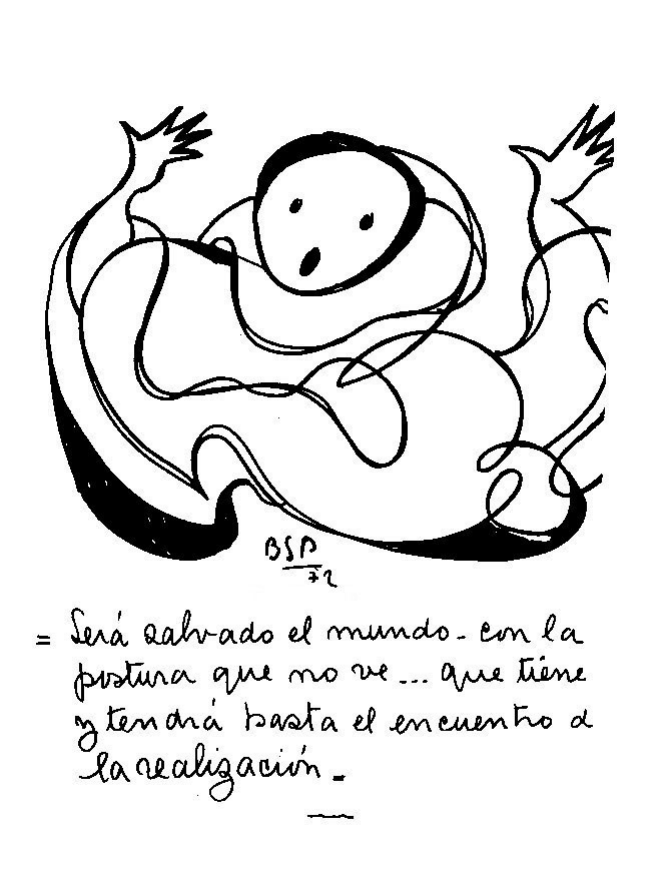 BSP
72
= Será salvado el mundo - con la
postura que no ve... que tiene
y tendrá hasta el encuentro d
la realización -